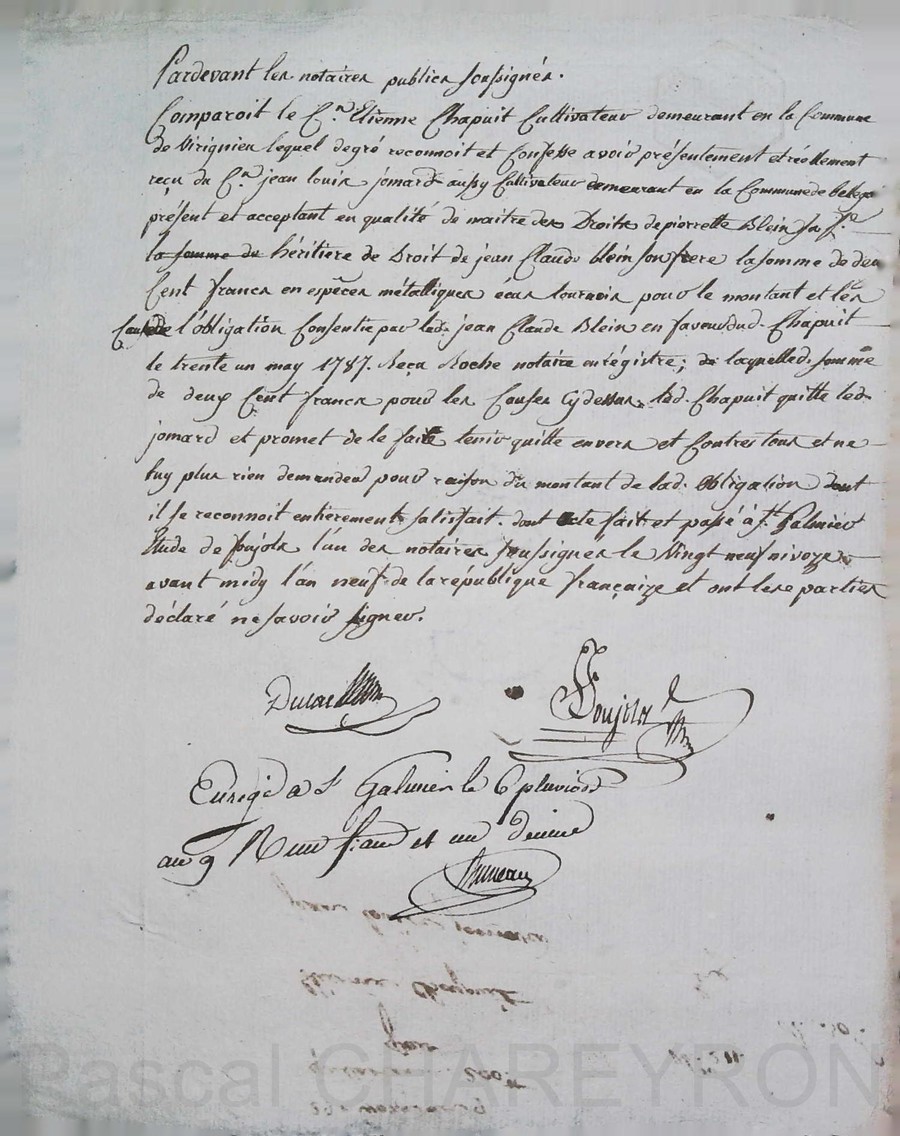 Pardevant les notaires publics soussignés.
Comparoit le C.en Etienne Chapuit Cultivateur demeurant en la Commune
de Virignieu lequel degré reconnoit et Confesse avoir présentement et réellement
reçu du C.en jean louis jomard aussy Cultivateur demeurant en la Commune de bellega
présent et acceptant en qualité de maitre des Droits de pierrette Blein sa f.e
la somme de héritiere de Droit de jean Claude blein son frere la somme de deux
Cent francs en espèces métalliques écus tournois pour le montant et les
Causes de l'obligation Consentie par lad. jean Claude Blein en faveur dud. Chapuit
le trente un may 1787. Reçu Roche notaire enrégistré; de laquelle d. somme
de deux Cent francs pour les Causes cydessus led. Chapuit quitte led.
jomard et promet de le faire tenir quitte envers et Contres tous et ne
luy plus rien demander pour raison du montant de lad. obligation dont
il se reconnoit entierement satisfait. dont acte fait et passé à S.t Galmier
Etude de soujols l'un des notaires soussignes le Vingt neuf nivoze
avant midy l'an neuf de la république françaize et ont les parties
déclaré ne savoir signer.
Dulac
Soujols
Enregé a St Galmier le 6 pluviose
an 9 R un franc et un decime
Bruneau
jean louis jomard
Etienne Chapuit
pour
quittance 200.tt
29 nivose an 9
Pascal CHAREYRON